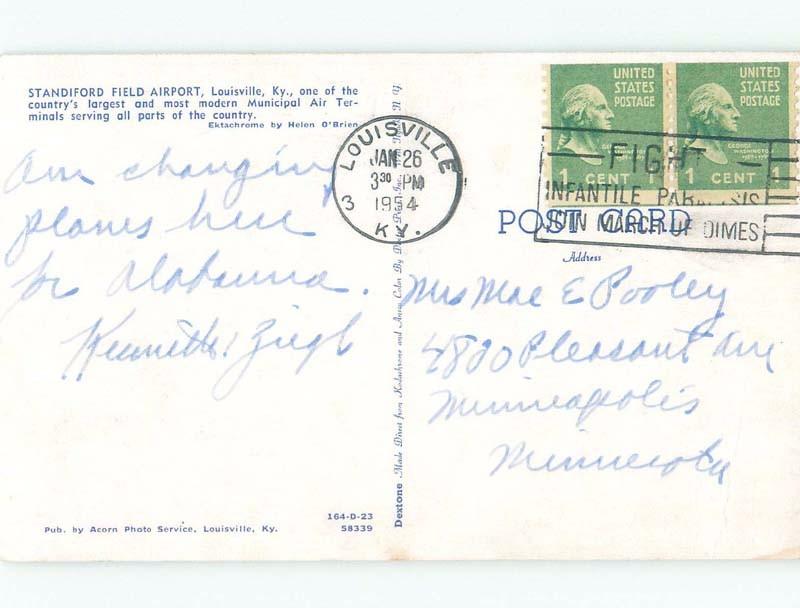 STANDIFORD FIELD AIRPORT, Louisville, Ky., one of the
country's largest and most modern Municipal Air Ter-
minals serving all parts of the country.
Ektachrome by Helen O'Brien
am changing
planes here
for Alabama.
Kenneth Ziegl
164-D-23
58339
Pub. by Acorn Photo Service, Louisville, Ky.
Dextone Made Direct from Kodachrome and Ansco Color By
LOUISVILLE
JAN 26
3 30 PM
1954
3
KY.
UNITED
STATES
POSTAGE
GEORGE
WASHINGTON
1 CENT 1
UNITED
STATES
POSTAGE
GEORGE
WASHINGTON
1 CENT 1
FIGHT
INFANTILE PARALYSIS
JOIN MARCH OF DIMES
POST CARD
Address
Mrs Mae E Pooley
4820 Pleasant Ave
Minneapolis
Minnesota